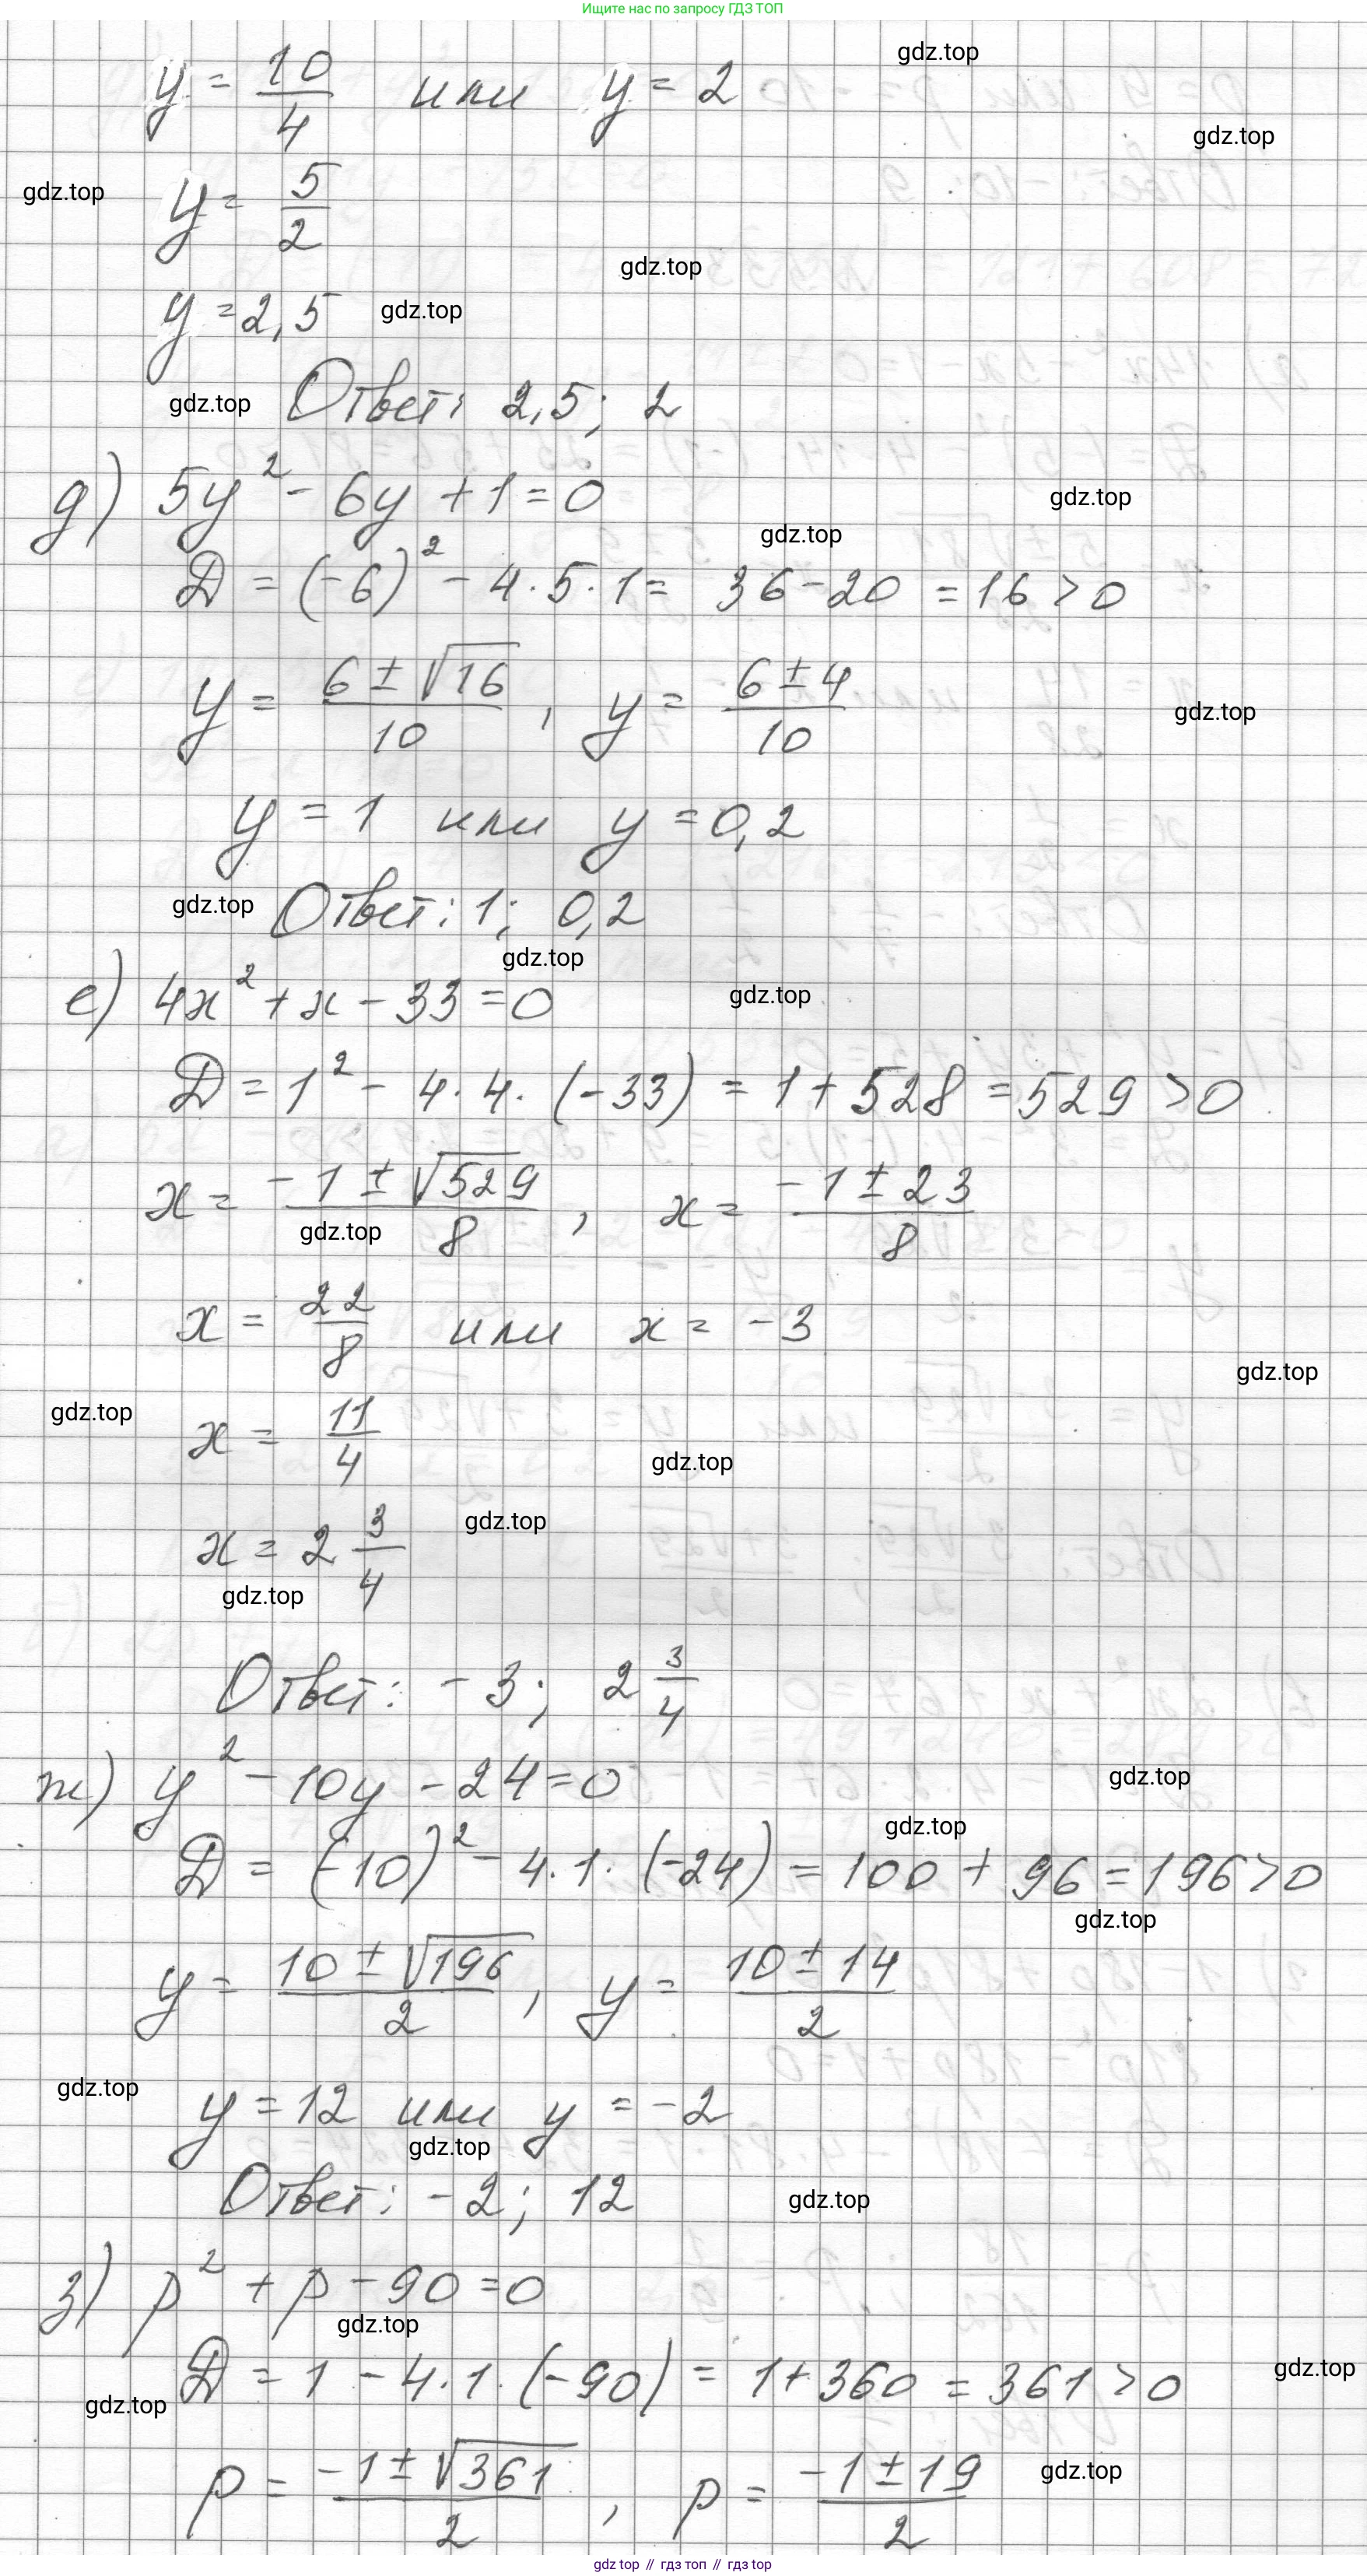 Ищите нас по запросу ГДЗ ТОП
gdz.top
y = 10/4 или y = 2
gdz.top
gdz.top
y = 5/2
gdz.top
y = 2,5 gdz.top
gdz.top Ответ: 2,5; 2
д) 5y² - 6y + 1 = 0
gdz.top
gdz.top
D = (-6)² - 4·5·1 = 36 - 20 = 16 > 0
y = (6 ± √16)/10 , y = (6 ± 4)/10
gdz.top
y = 1 или y = 0,2
gdz.top Ответ: 1; 0,2
gdz.top
е) 4x² + x - 33 = 0
gdz.top
D = 1² - 4·4·(-33) = 1 + 528 = 529 > 0
x = (-1 ± √529)/8 , x = (-1 ± 23)/8
gdz.top
x = 22/8 или x = -3
gdz.top
gdz.top
x = 11/4
gdz.top
x = 2 3/4 gdz.top
gdz.top
Ответ: -3; 2 3/4
ж) y² - 10y - 24 = 0
gdz.top
gdz.top
D = (-10)² - 4·1·(-24) = 100 + 96 = 196 > 0
gdz.top
y = (10 ± √196)/2 , y = (10 ± 14)/2
gdz.top
y = 12 или y = -2
gdz.top
Ответ: -2; 12
gdz.top
з) p² + p - 90 = 0
gdz.top
D = 1 - 4·1·(-90) = 1 + 360 = 361 > 0
gdz.top
gdz.top
p = (-1 ± √361)/2 , p = (-1 ± 19)/2
gdz.top
gdz top // гдз топ // gdz top